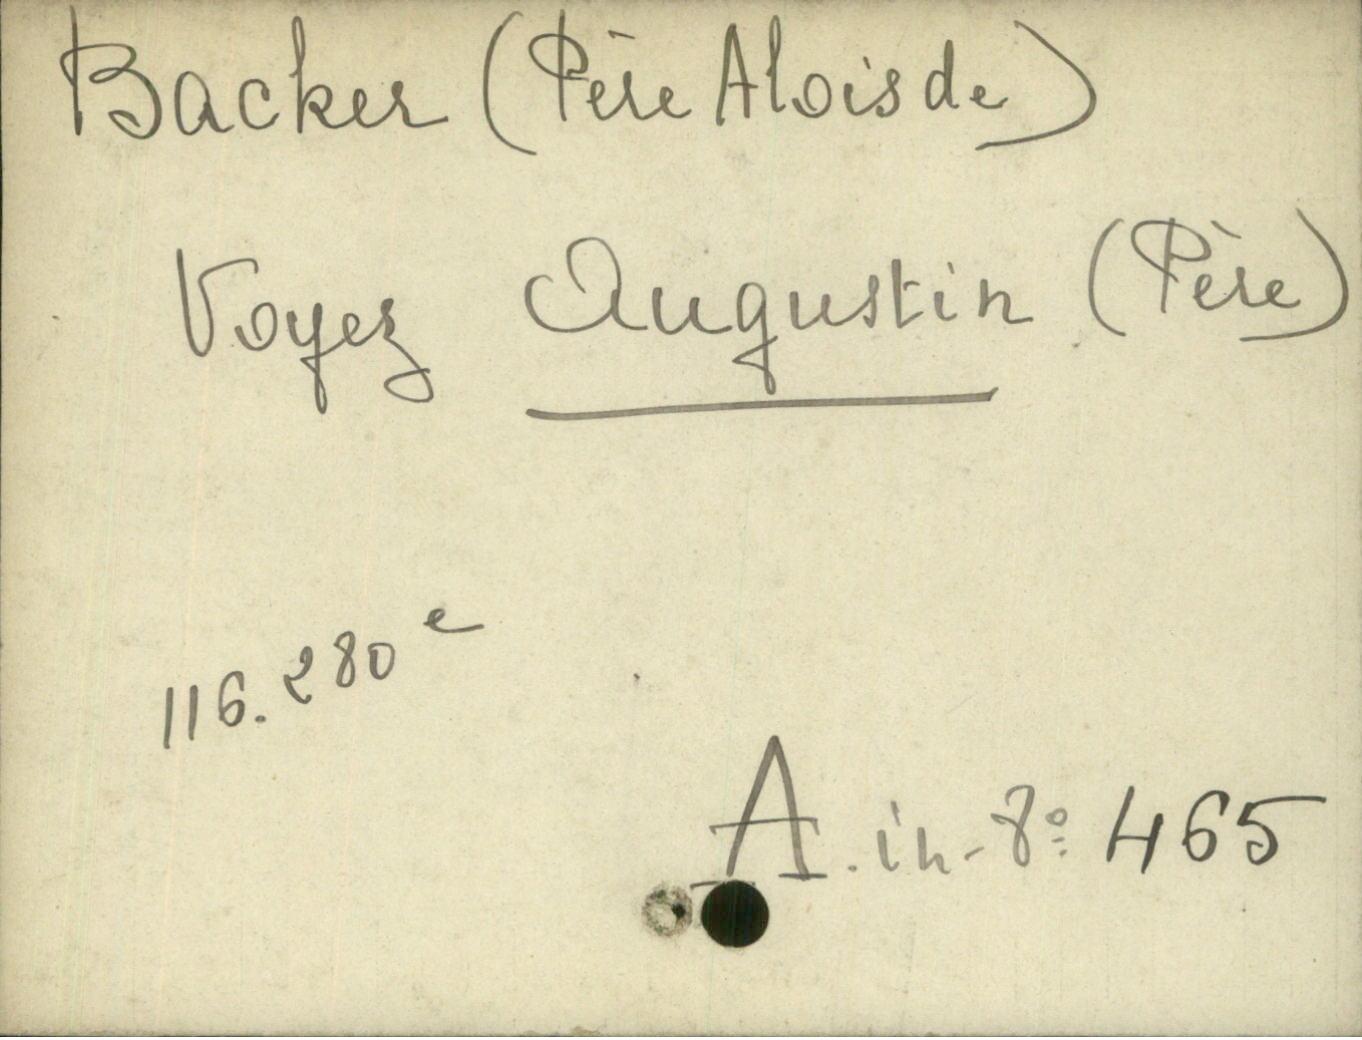 Backer (Père Alois de)
Voyez Augustin (Père)
116.280 e
A. in-8º: 465